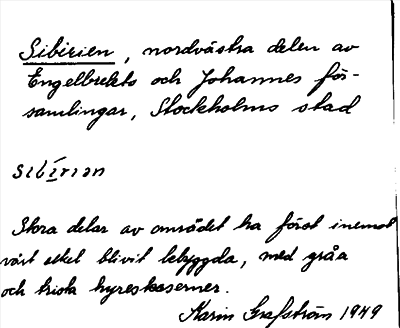 Sibirien, nordvästra delen av
Engelbrekts och Johannes för-
samlingar, Stockholms stad
sibírian
Stora delar av området ha först inemot
vårt sekel blivit bebyggda, med gråa
och trista hyreskaserner.
Karin Grafström 1949